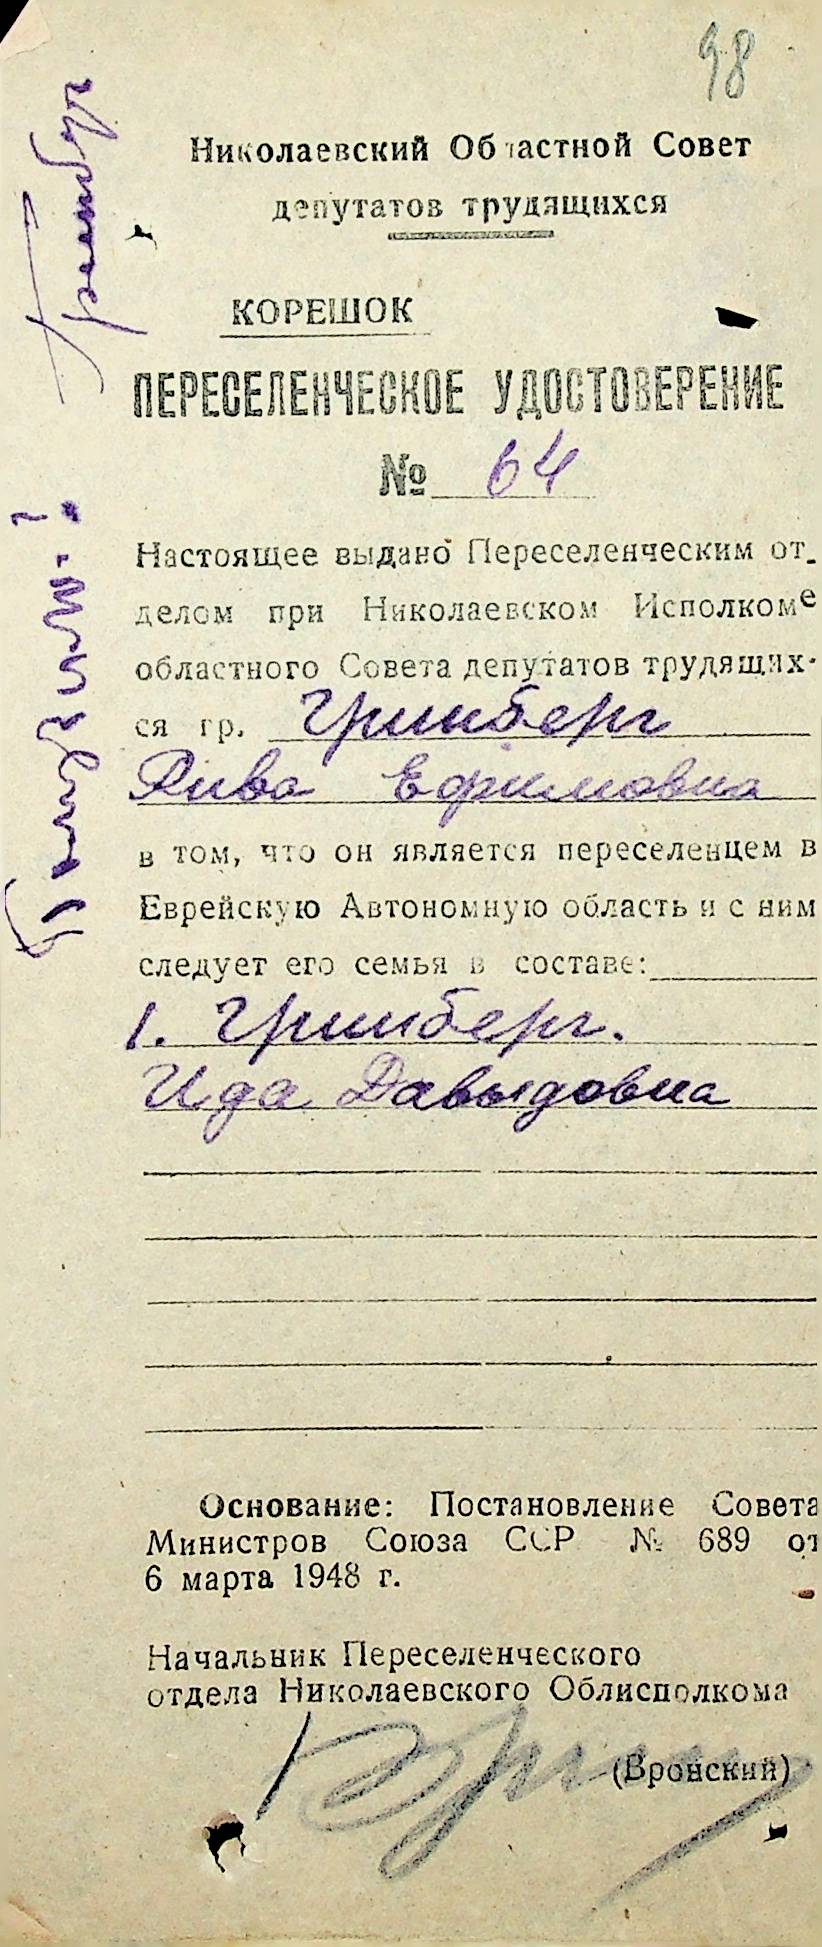 98
Николаевский Областной Совет
депутатов трудящихся
КОРЕШОК
ПЕРЕСЕЛЕНЧЕСКОЕ УДОСТОВЕРЕНИЕ
№ 64
Настоящее выдано Переселенческим от-
делом при Николаевском Исполкоме
областного Совета депутатов трудящих-
ся гр. Гринберг
Рива Ефимовна
в том, что он является переселенцем в
Еврейскую Автономную область и с ним
следует его семья в составе:
1. Гринберг.
Ида Давыдовна
Основание: Постановление Совета
Министров Союза ССР № 689 от
6 марта 1948 г.
Начальник Переселенческого
отдела Николаевского Облисполкома
(Вронский)